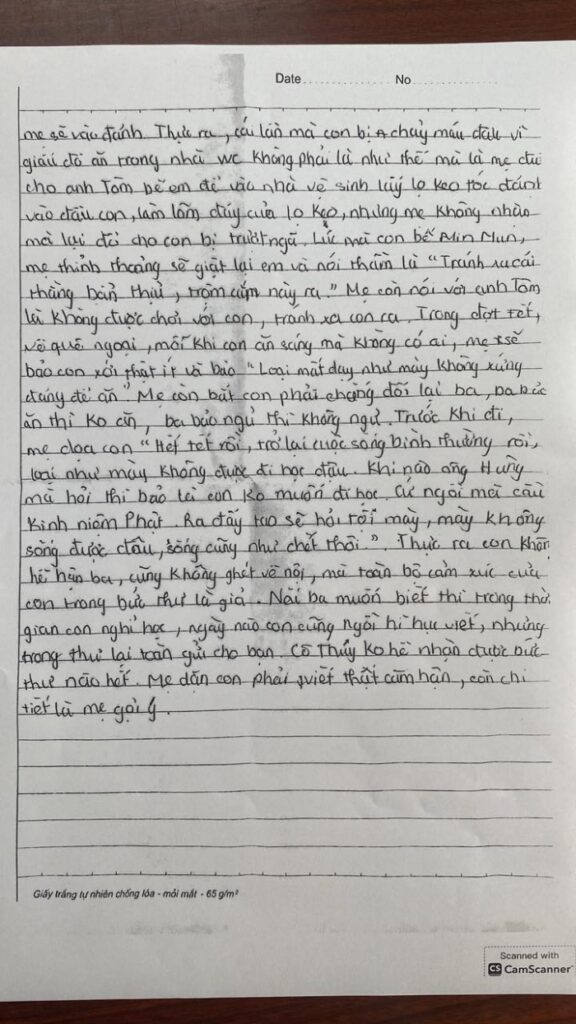 Date No
mẹ sẽ vào đánh. Thực ra, cái lần mà con bị chảy máu đầu vì
giấu đồ ăn trong nhà wc không phải là như thế mà là mẹ đã
cho anh Tôm bế em để vào nhà vệ sinh lấy lọ keo tóc đánh
vào đầu con, làm lõm đáy của lọ keo, nhưng mẹ không nhận
mà lại đổ cho con bị trượt ngã. Lúc mà con bế Min Mun,
mẹ thỉnh thoảng sẽ giật lại em và nói thầm là "Tránh xa cái
thằng bẩn thỉu, trộm cắm này ra." Mẹ còn nói với anh Tôm
là không được chơi với con, tránh xa con ra. Trong đợt tết,
về quê ngoại, mỗi khi con ăn sáng mà không có ai, mẹ sẽ
bảo con xới thật ít và bảo "Loại mất dạy như mày không xứng
đáng để ăn". Mẹ còn bắt con phải chống đối lại ba, ba bảo
ăn thì ko ăn, ba bảo ngủ thì không ngủ. Trước khi đi,
mẹ dọa con "Hết tết rồi, trở lại cuộc sống bình thường rồi,
loại như mày không được đi học đâu. Khi nào ông Hưng
mà hỏi thì bảo là con ko muốn đi học. Cứ ngồi mà cầu
kinh niệm Phật. Ra đấy tao sẽ hỏi tội mày, mày không
sống được đâu, sống cũng như chết thôi.". Thực ra con không
hề hận ba, cũng không ghét về nội, mà toàn bộ cảm xúc của
con trong bức thư là giả. Nói ba muốn biết thì trong thời
gian con nghỉ học, ngày nào con cũng ngồi hì hục viết, nhưng
trong thư lại toàn gửi cho bạn. Cô Thủy ko hề nhận được bức
thư nào hết. Mẹ dặn con phải viết thật căm hận, còn chi
tiết là mẹ gợi ý.
Giấy trắng tự nhiên chống lóa - mỏi mắt - 65 g/m²
Scanned with
CS CamScanner